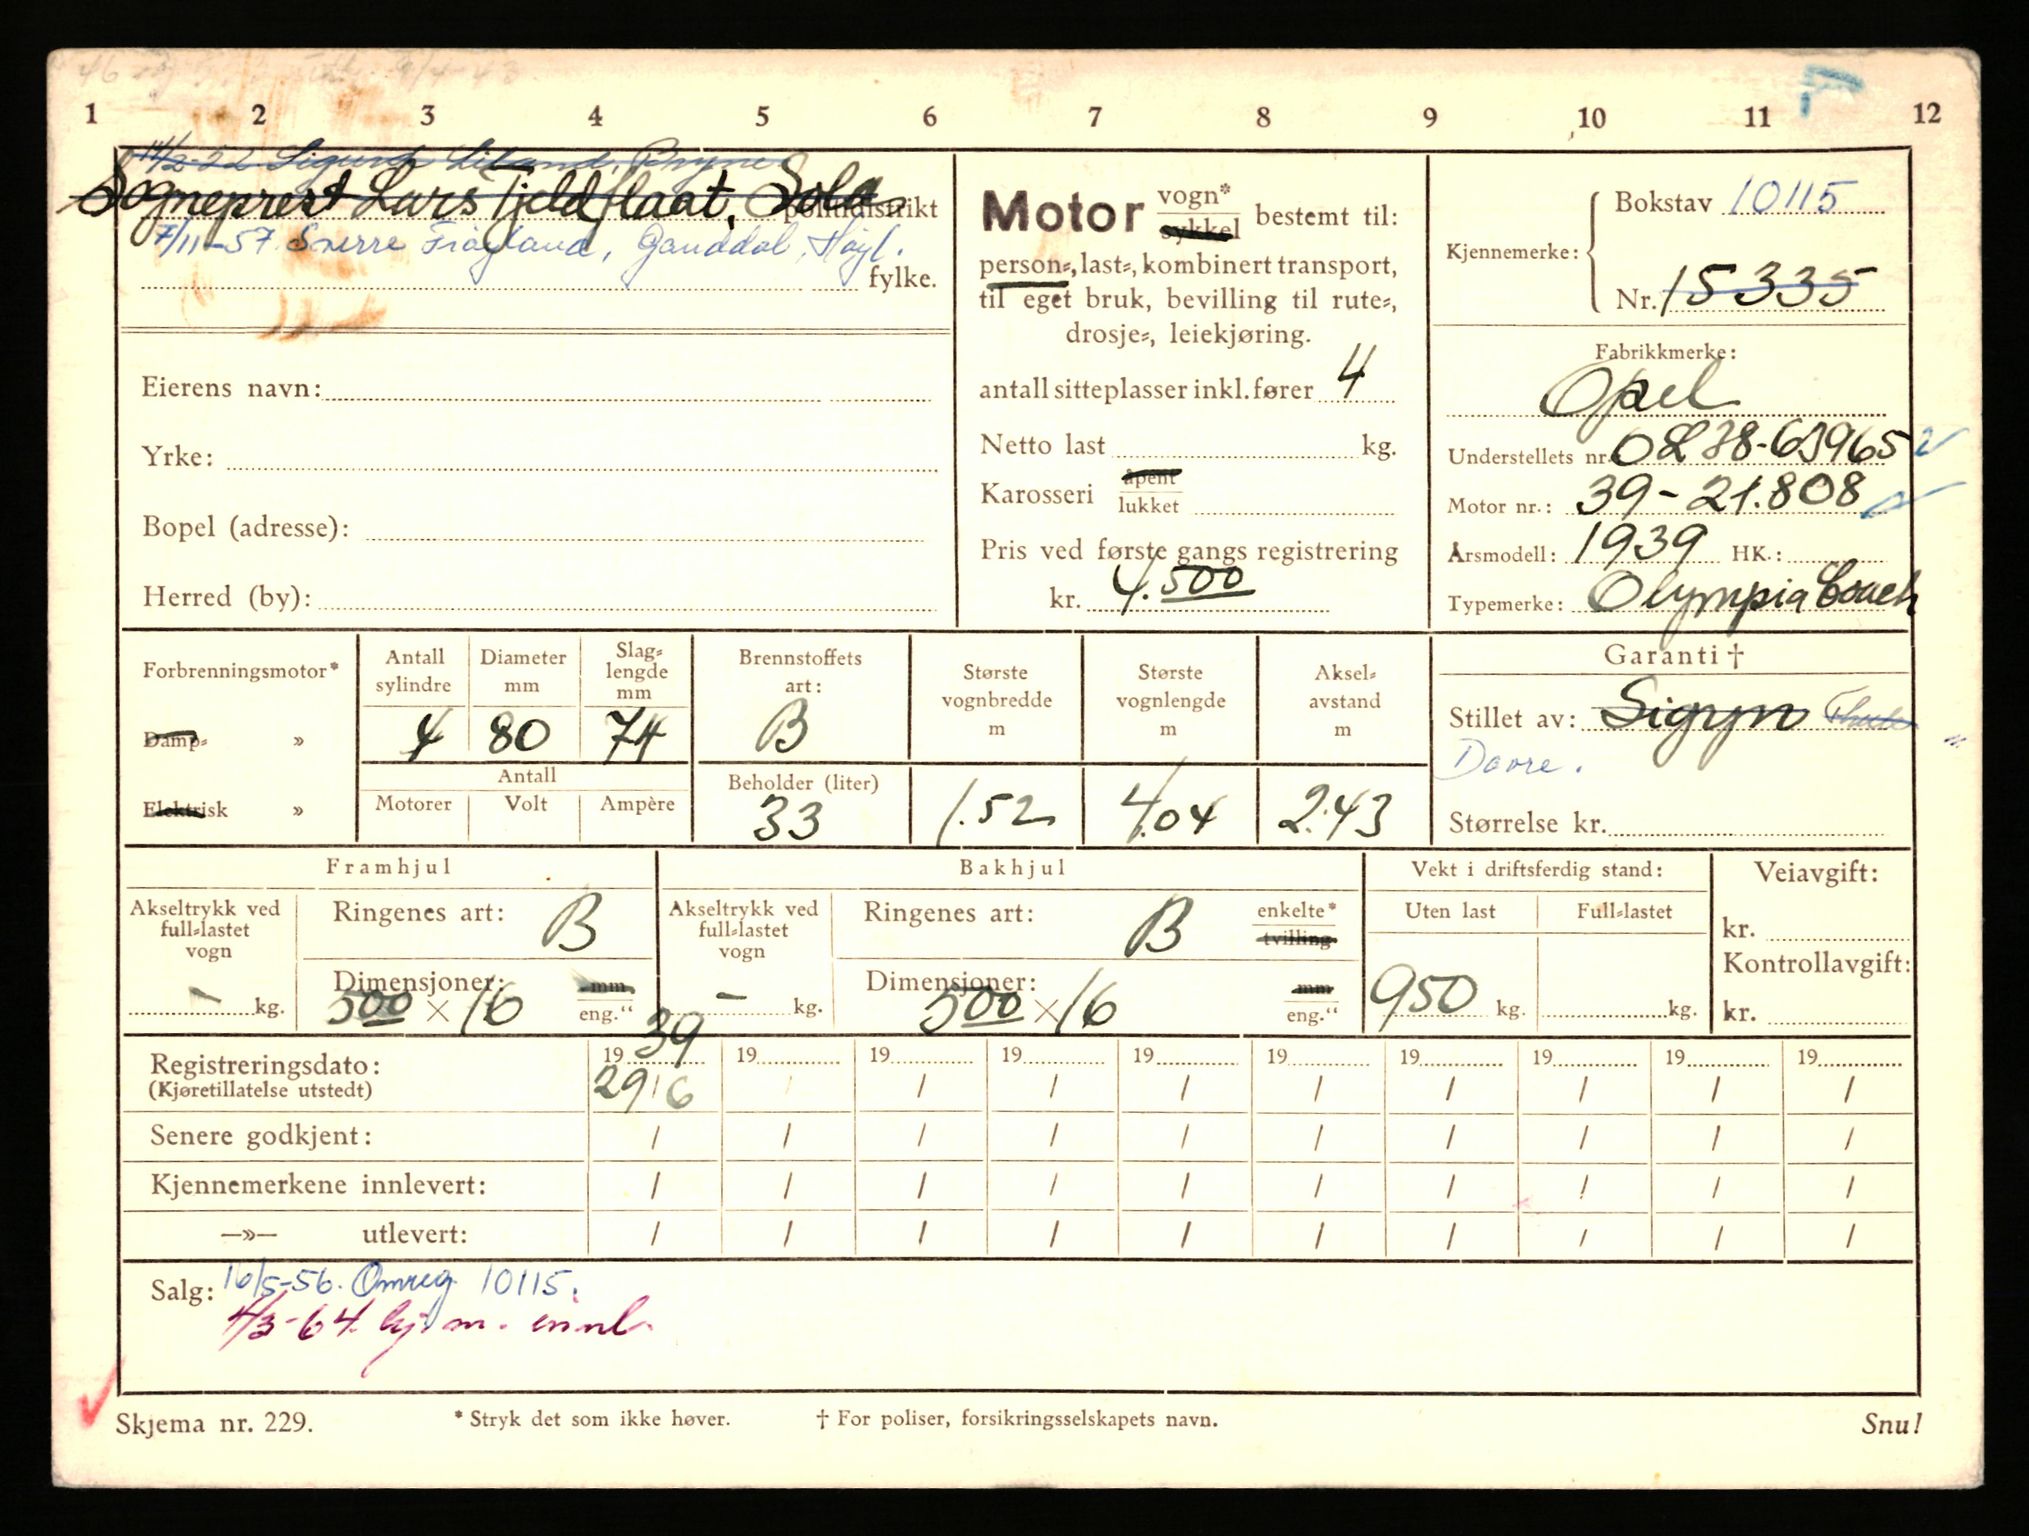 1 2 3 4 5 6 7 8 9 10 11 12
14/2-52 Sigurd Liland, Bryne
Sogneprest Lars Tjeldflaat, Sola politidistrikt
7/11-57 Sverre Frøyland, Ganddal, Høyl.
fylke.
Eierens navn:
Yrke:
Bopel (adresse):
Herred (by):
Motor vogn* sykkel bestemt til:
person-, last-, kombinert transport,
til eget bruk, bevilling til rute-,
drosje-, leiekjøring.
antall sitteplasser inkl. fører 4
Netto last kg.
Karosseri åpent lukket
Pris ved første gangs registrering
kr. 4.500
Kjennemerke: Bokstav 10115
Nr. 15335
Fabrikkmerke:
Opel
Understellets nr. OL38-63965
Motor nr.: 39-21.808
Årsmodell: 1939 HK.:
Typemerke: Olympia Coach
Forbrenningsmotor*
Damp- »
Elektrisk »
Antall sylindre 4
Diameter mm 80
Slag-lengde mm 74
Antall
Motorer Volt Ampère
Brennstoffets art: B
Beholder (liter) 33
Største vognbredde m 1.52
Største vognlengde m 4.04
Aksel-avstand m 2.43
Garanti †
Stillet av: Sigyn
Dovre.
Størrelse kr.
Framhjul
Akseltrykk ved full-lastet vogn - kg.
Ringenes art: B
Dimensjoner: 500 x 16 mm eng."
Bakhjul
Akseltrykk ved full-lastet vogn - kg.
Ringenes art: B enkelte* tvilling
Dimensjoner: 500 x 16 mm eng."
Vekt i driftsferdig stand:
Uten last Full-lastet
950 kg. kg.
Veiavgift:
kr.
Kontrollavgift:
kr.
Registreringsdato: 19 39 19 19 19 19 19 19 19 19 19
(Kjøretillatelse utstedt) 29/6 / / / / / / / / /
Senere godkjent: / / / / / / / / / /
Kjennemerkene innlevert: / / / / / / / / / /
—»— utlevert: / / / / / / / / / /
Salg: 16/5-56. Omreg 10115.
4/3-64. kj.m. innl.
Skjema nr. 229. * Stryk det som ikke høver. † For poliser, forsikringsselskapets navn. Snu!